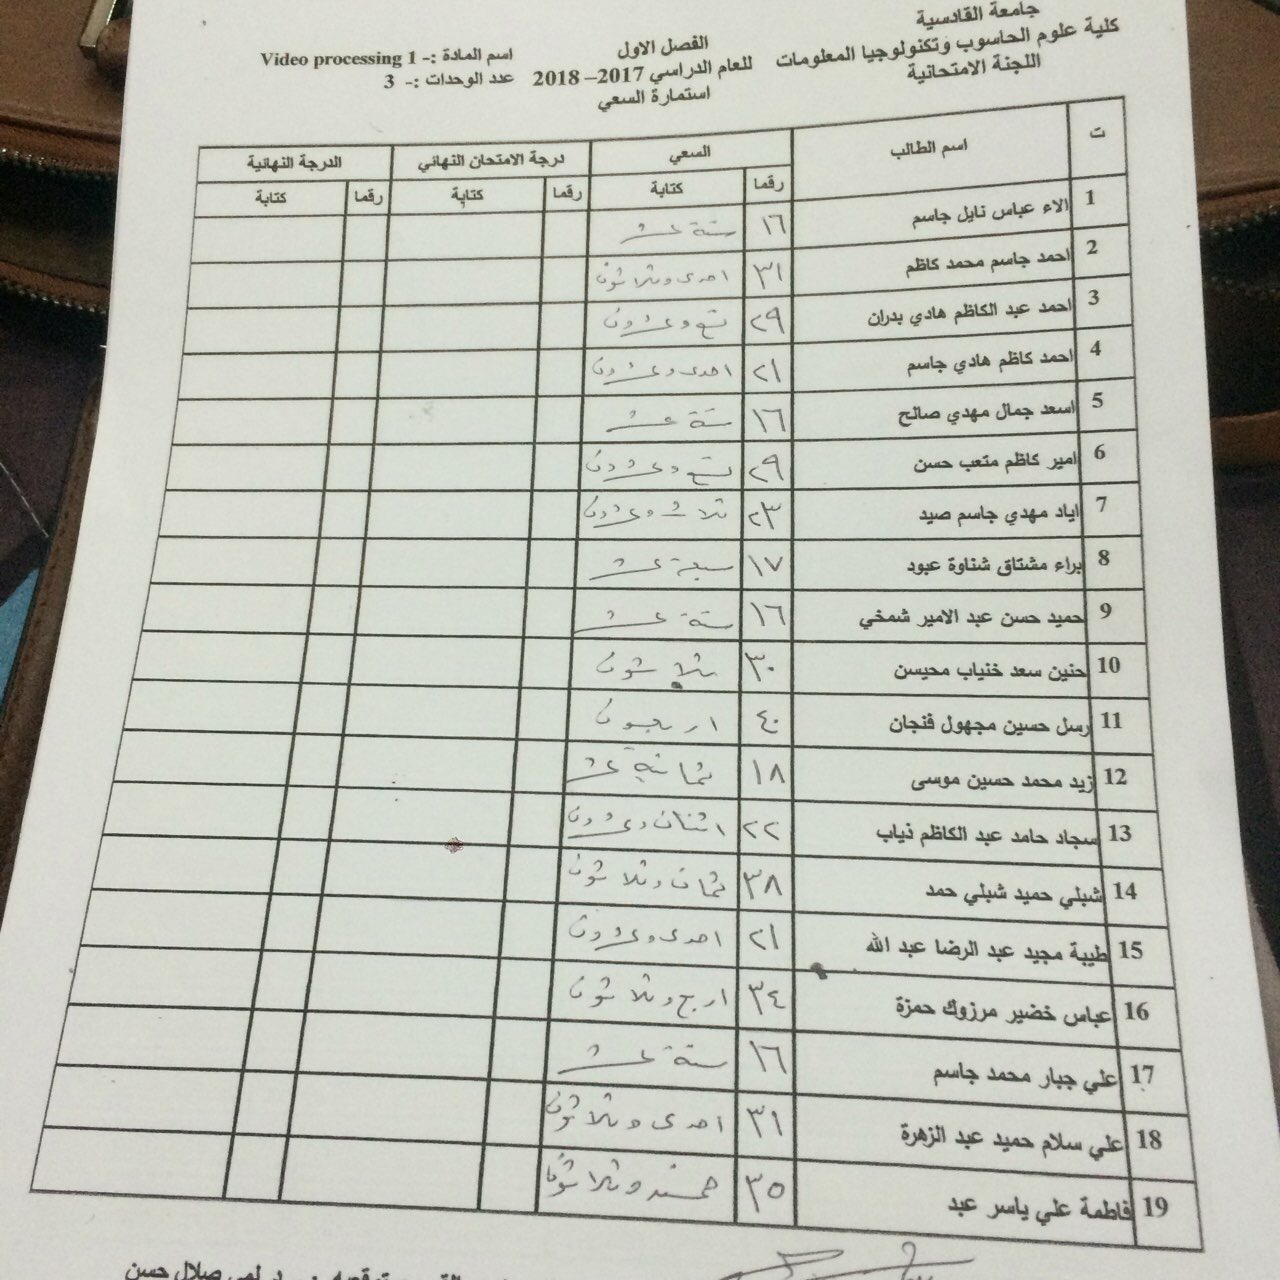 جامعة القادسية
كلية علوم الحاسوب وتكنولوجيا المعلومات
اللجنة الامتحانية
الفصل الاول
للعام الدراسي 2017– 2018
استمارة السعي
اسم المادة :- Video processing 1
عدد الوحدات :- 3
ت اسم الطالب السعي درجة الامتحان النهائي الدرجة النهائية
رقما كتابة رقما كتابة رقما كتابة
1 الاء عباس نايل جاسم ١٦ ستة عشر
2 احمد جاسم محمد كاظم ٣١ احدى وثلاثون
3 احمد عبد الكاظم هادي بدران ٢٩ تسع وعشرون
4 احمد كاظم هادي جاسم ٢١ احدى وعشرون
5 اسعد جمال مهدي صالح ١٦ ستة عشر
6 امير كاظم متعب حسن ٢٩ تسع وعشرون
7 اياد مهدي جاسم صيد ٢٣ ثلاث وعشرون
8 براء مشتاق شناوة عبود ١٧ سبعة عشر
9 حميد حسن عبد الامير شمخي ١٦ ستة عشر
10 حنين سعد خنياب محيسن ٣٠ ثلاثون
11 رسل حسين مجهول فنجان ٤٠ اربعون
12 زيد محمد حسين موسى ١٨ ثمانية عشر
13 سجاد حامد عبد الكاظم ذياب ٢٢ اثنان وعشرون
14 شبلي حميد شبلي حمد ٣٨ ثمان وثلاثون
15 طيبة مجيد عبد الرضا عبد الله ٢١ احدى وعشرون
16 عباس خضير مرزوك حمزة ٣٤ اربع وثلاثون
17 علي جبار محمد جاسم ١٦ ستة عشر
18 علي سلام حميد عبد الزهرة ٣١ احدى وثلاثون
19 فاطمة علي ياسر عبد ٣٥ خمسة وثلاثون
لمى صلال حسن